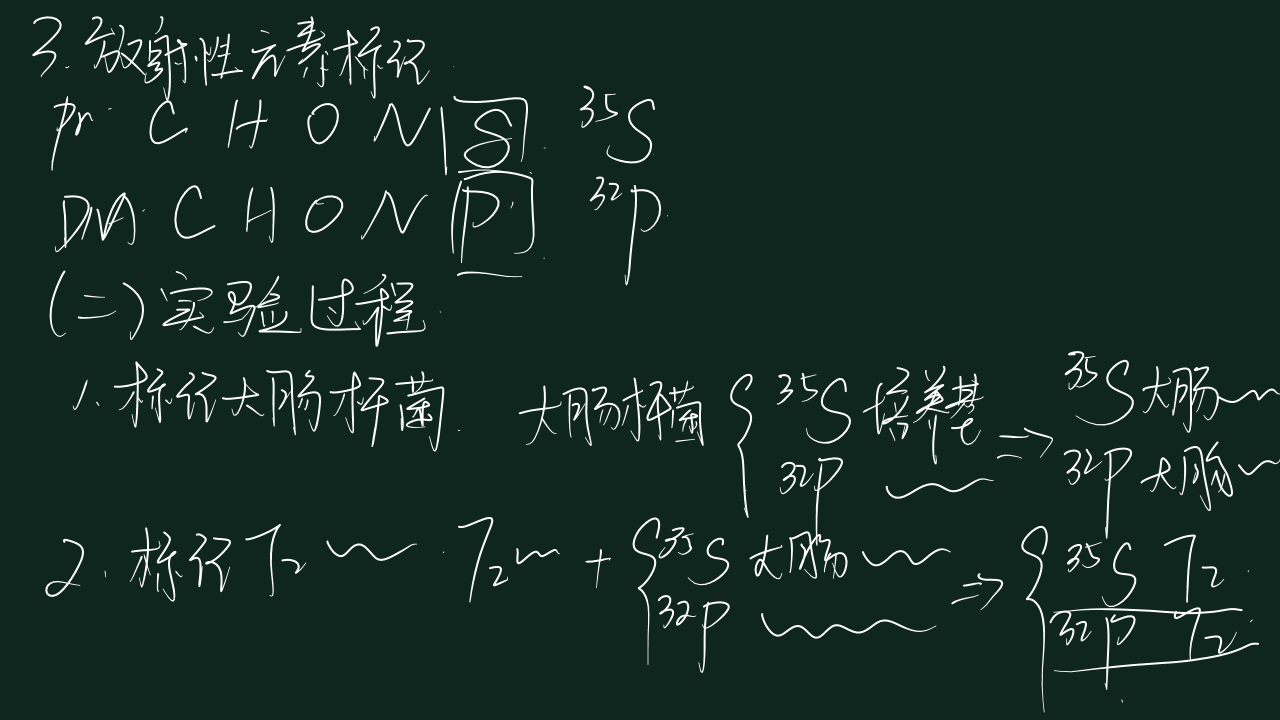 3. 放射性元素标记
pr C H O N S ³⁵S
DNA C H O N P ³²P
(二) 实验过程
1. 标记大肠杆菌 大肠杆菌 { ³⁵S 培养基 ⇒ ³⁵S 大肠
³²P ³²P 大肠
2. 标记 T₂ T₂ + { ³⁵S 大肠 ⇒ { ³⁵S T₂
³²P ³²P T₂